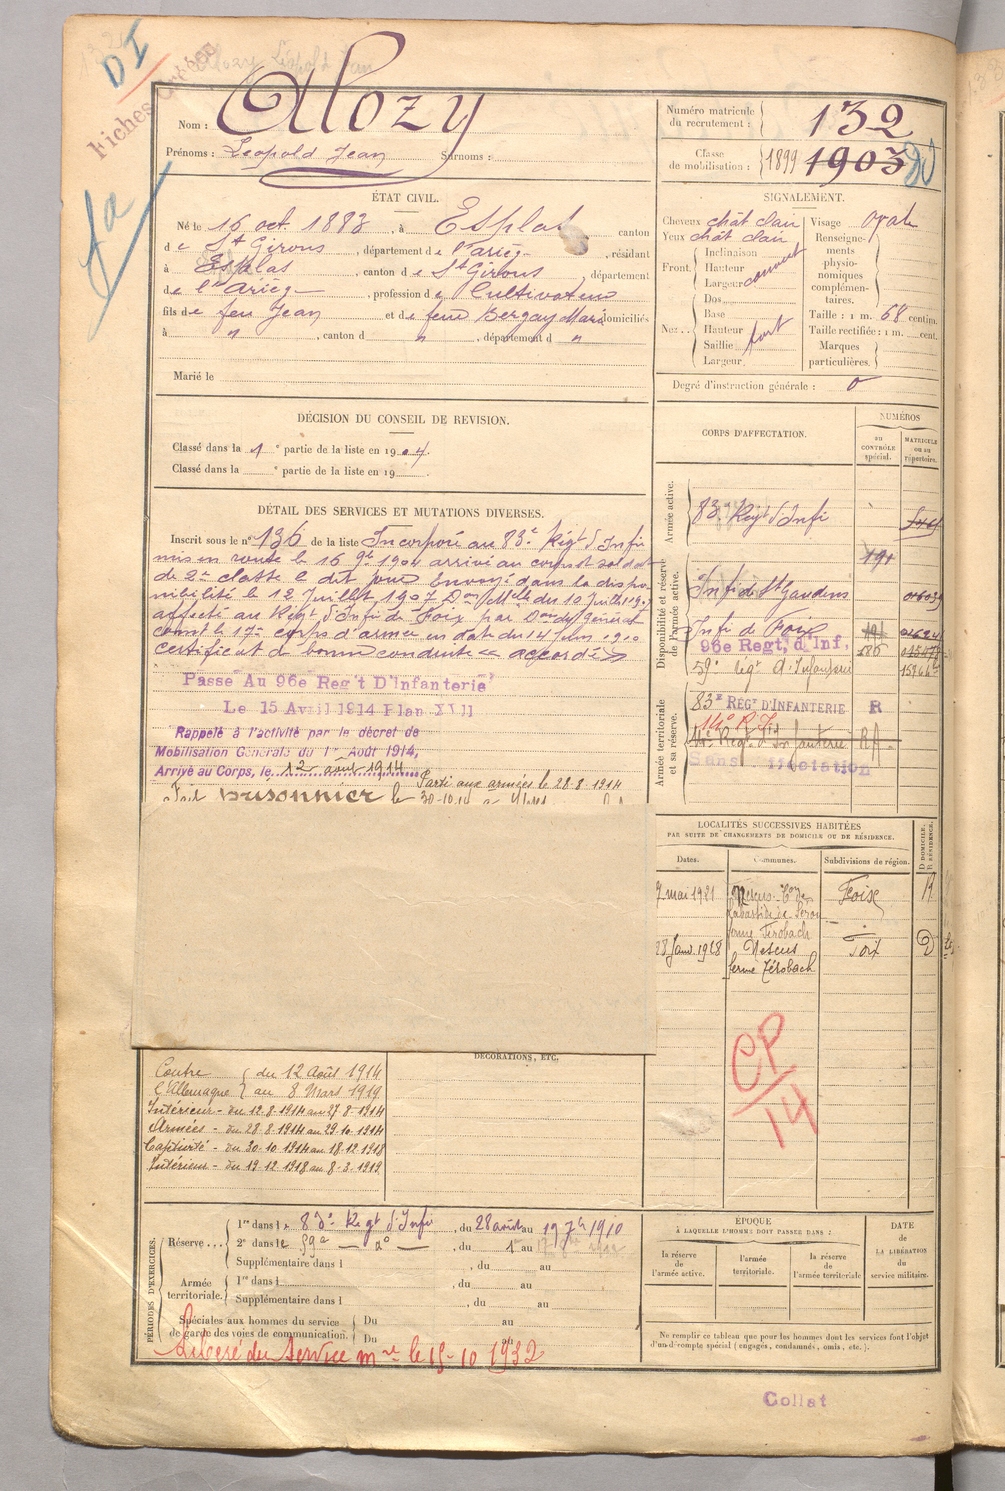 DI
Fiches
Nom : Alozy
Prénoms : Léopold Jean Surnoms :
Numéro matricule du recrutement : 132
Classe de mobilisation : 1899 1903
ÉTAT CIVIL.
Né le 16 oct. 1883, à Esplas canton
de St Girons, département de l'Arièg, résidant
à Esplas, canton de St Girons, département
de l'Arièg, profession de Cultivateur
fils de feu Jean et de feue Bergay Marie domiciliés
à n, canton d n, département d n
Marié le
SIGNALEMENT.
Cheveux chât clair
Yeux chât clair
Front. Inclinaison
Hauteur
Largeur
Nez Dos
Base
Hauteur fort
Saillie
Largeur
Visage oval
Renseignements physionomiques complémentaires.
Taille : 1 m. 68 centim.
Taille rectifiée : 1 m. cent.
Marques particulières.
Degré d'instruction générale : 0
DÉCISION DU CONSEIL DE REVISION.
Classé dans la 1e partie de la liste en 1904.
Classé dans la e partie de la liste en 19
CORPS D'AFFECTATION.
NUMÉROS
AU CONTRÔLE spécial.
MATRICULE ou au répertoire.
Armée active.
83e Régt d'Infie
Disponibilité et réserve de l'armée active.
191
Infie de St Gaudens
Infie de Foix
96e Regt, d'Inf.
59e régt d'Infanterie
Armée territoriale et sa réserve.
83e RÉGT D'INFANTERIE R
14e R.I.
Régt d'Infanterie RA
Sans
DÉTAIL DES SERVICES ET MUTATIONS DIVERSES.
Inscrit sous le n° 136 de la liste Incorporé au 83e Régt d'Infie
mis en route le 16 9bre 1904 arrivé au corps et soldat
de 2e classe le dit jour Envoyé dans la dispo-
nibilité le 12 Juillet 1907 Don Mlle du 10 Juillet 190
affecté au Régt d'Infie de Foix par Don du Général
comt le 17e corps d'armée en date du 14 Juin 1910
certificat de bonne conduite « accordé »
Passe Au 96e Reg't D'Infanterie
Le 15 Avril 1914 Plan XVII
Rappelé à l'activité par le décret de
Mobilisation Générale du 1er Août 1914,
Arrivé au Corps, le 12 août 1914 Parti aux armées le 28-8 1914
Fait prisonnier le 30-10-14
LOCALITÉS SUCCESSIVES HABITÉES
PAR SUITE DE CHANGEMENTS DE DOMICILE OU DE RÉSIDENCE.
Dates. Communes. Subdivisions de région. D DOMICILE. R RÉSIDENCE.
7 mai 1921 Nescus Con de Foix R
Labastide de Sérou
ferme Tirobach
28 Janv. 1928 Nescus Foix D
ferme Tirobach
CP
14
DÉCORATIONS, ETC.
Contre du 12 Août 1914
l'Allemagne au 8 Mars 1919
Intérieur - du 12-8-1914 au 27-8-1914
Armées - du 28-8-1914 au 29-10-1914
Captivité - du 30-10-1914 au 18-12-1918
Intérieur - du 19-12-1918 au 8-3-1919
PÉRIODES D'EXERCICES.
Réserve 1re dans le 83e Régt d'Infie, du 28 août au 19 7bre 1910
2e dans le 59e — do —, du 1er au 17
Supplémentaire dans l , du au
Armée territoriale. 1re dans l , du au
Supplémentaire dans l , du au
Spéciales aux hommes du service de garde des voies de communication. Du au
Du au
Libéré du Service mre le 15-10 1932
EPOQUE
À LAQUELLE L'HOMME DOIT PASSER DANS :
la réserve de l'armée active.
l'armée territoriale.
la réserve de l'armée territoriale
DATE DE LA LIBÉRATION du service militaire.
Ne remplir ce tableau que pour les hommes dont les services font l'objet
d'un décompte spécial (engagés, condamnés, omis, etc.).
Collat